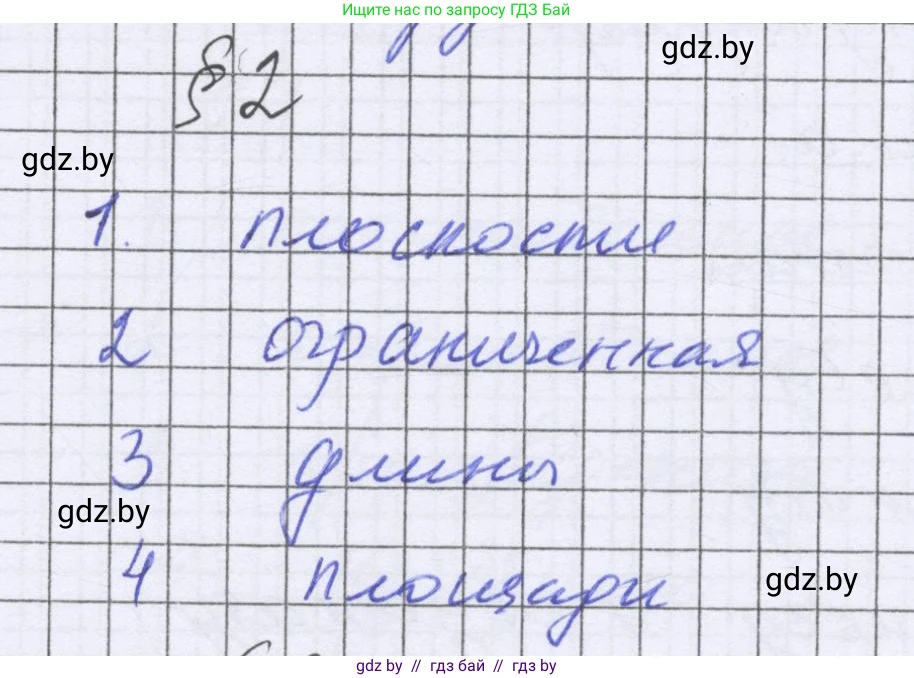 Ищите нас по запросу ГДЗ Бай
§ 2
gdz.by
gdz.by
1. плоскости
2 ограниченная
3 длины
gdz.by
4 площади
gdz.by
gdz by // гдз бай // гдз by